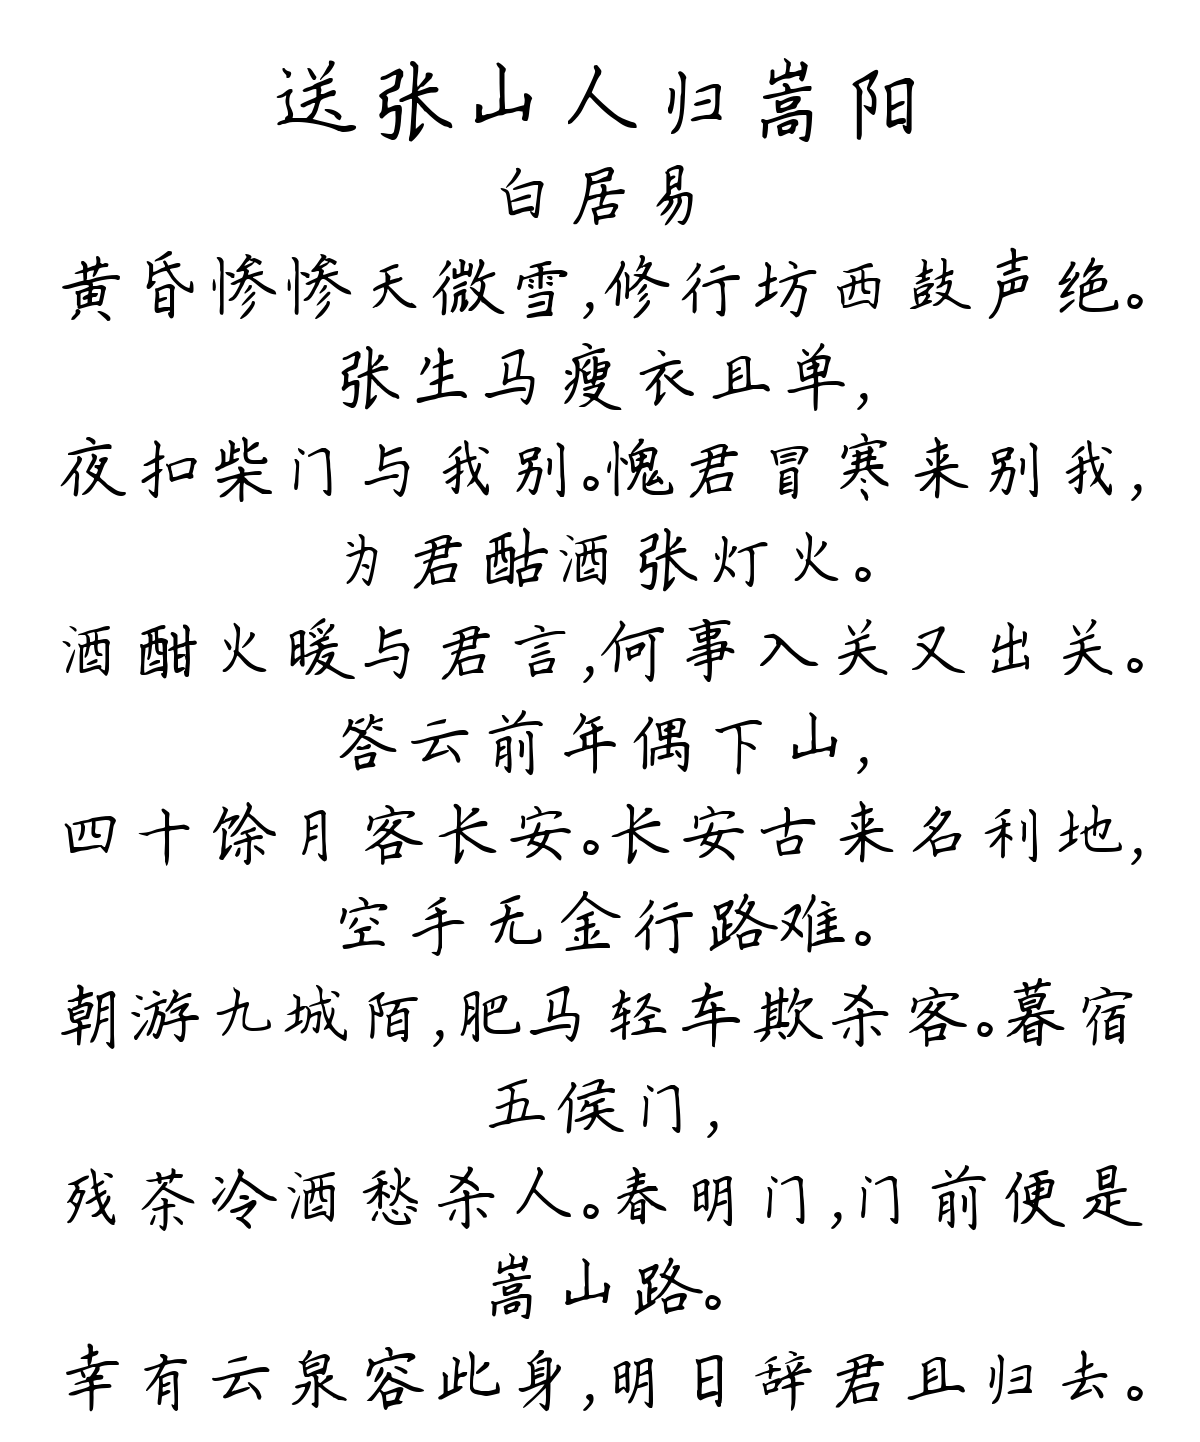 送张山人归嵩阳
白居易
黄昏惨惨天微雪,修行坊西鼓声绝。
张生马瘦衣且单,
夜扣柴门与我别。愧君冒寒来别我,
为君酤酒张灯火。
酒酣火暖与君言,何事入关又出关。
答云前年偶下山,
四十馀月客长安。长安古来名利地,
空手无金行路难。
朝游九城陌,肥马轻车欺杀客。暮宿
五侯门,
残茶冷酒愁杀人。春明门,门前便是
嵩山路。
幸有云泉容此身,明日辞君且归去。